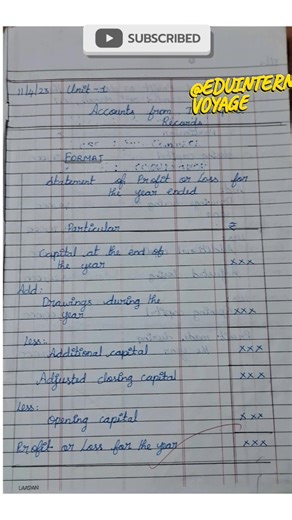 SUBSCRIBED
@EDUINTERN
VOYAGE
11/4/23 Unit-1
Accounts from
Records
FORMAT
Statement of Profit or Loss for
the year ended
Particular ₹
Capital at the end of
the year xxx
Add:
Drawings during the
year xxx
Less:
Additional capital xxx
Adjusted closing capital xxx
Less:
Opening capital xxx
Profit or Loss for the year xxx